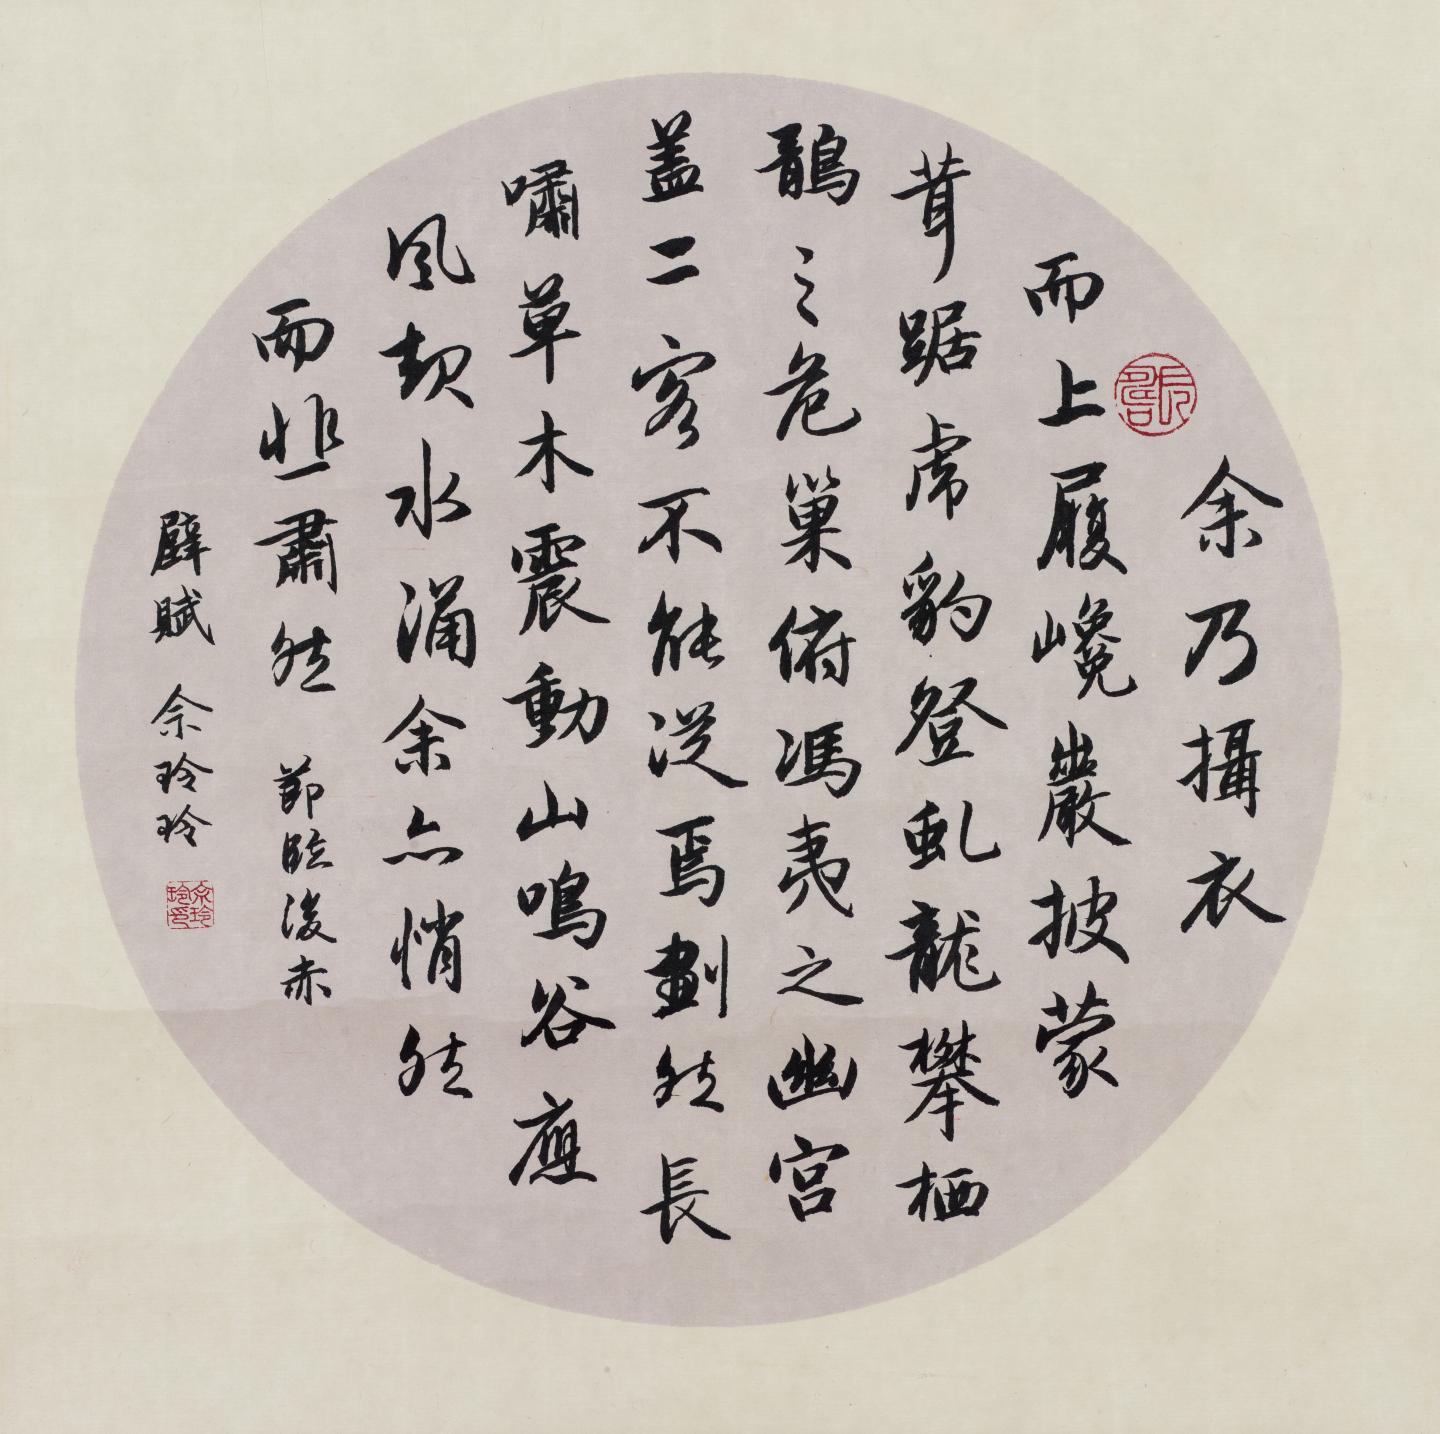 余乃攝衣
而上履巉巖披蒙
茸踞虎豹登虬龍攀栖
鶻之危巢俯馮夷之幽宫
盖二客不能從焉劃然長
嘯草木震動山鳴谷應
風起水涌余亦悄然
而悲肅然 節臨後赤
壁賦 佘玲玲
佘玲玲印